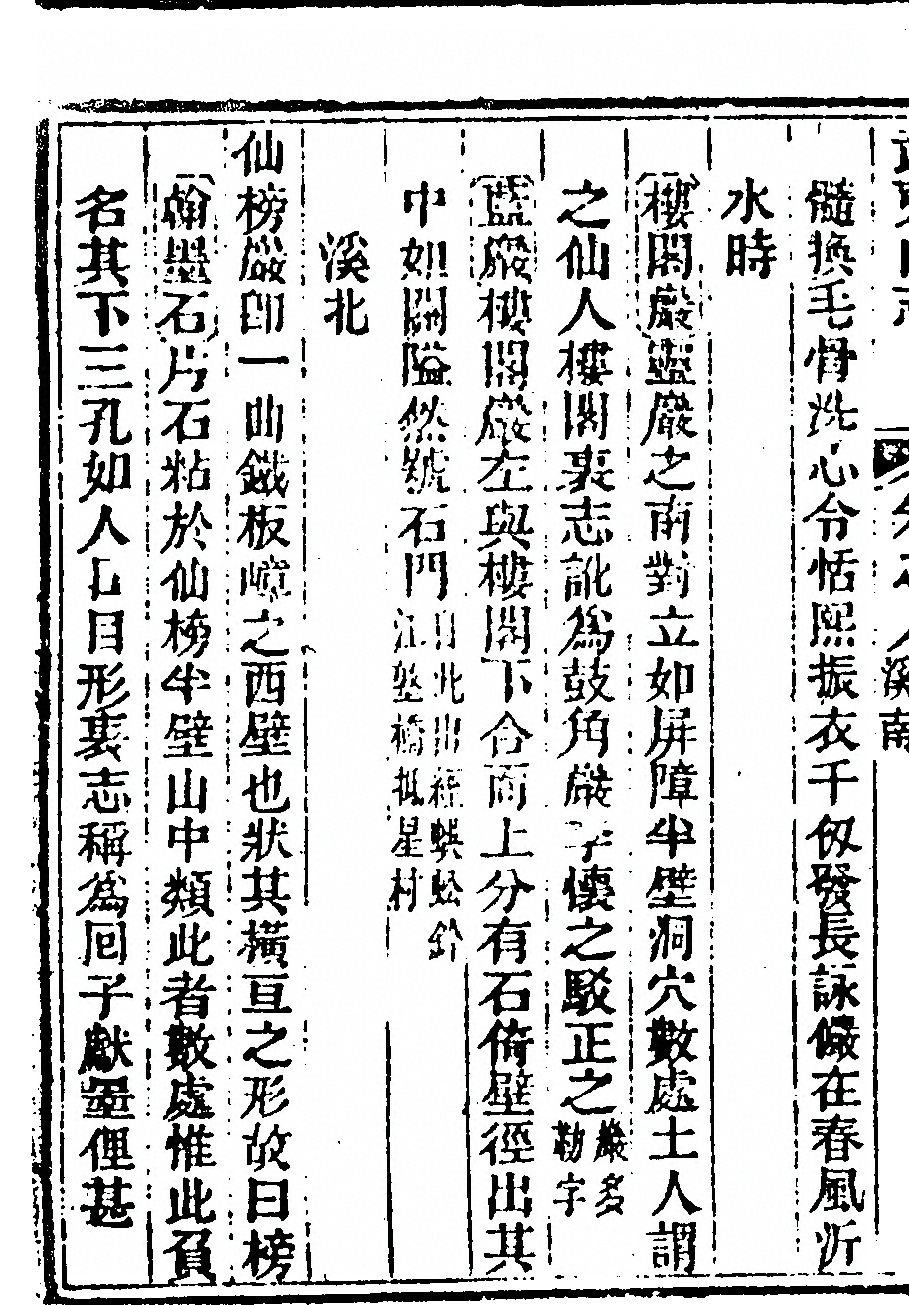 髓換毛骨洗心令恬熙振衣千仭發長詠儼在春風沂
水時
樓閣巖靈巖之南對立如屏障半壁洞穴數處土人謂
之仙人樓閣裘志訛為鼓角巖李懷之駁正之巖多勒字
藍巖樓閣巖左與樓閣下合而上分有石倚壁徑出其
中如關隘然號石門自北出經蜈蚣鈴江墪橋抵星村
溪北
仙榜巖即一曲鐵板嶂之西壁也狀其橫亘之形故曰榜
翰墨石片石粘於仙榜半壁山中類此者數處惟此負
名其下三孔如人口目形裘志稱為囘子獻墨俚甚